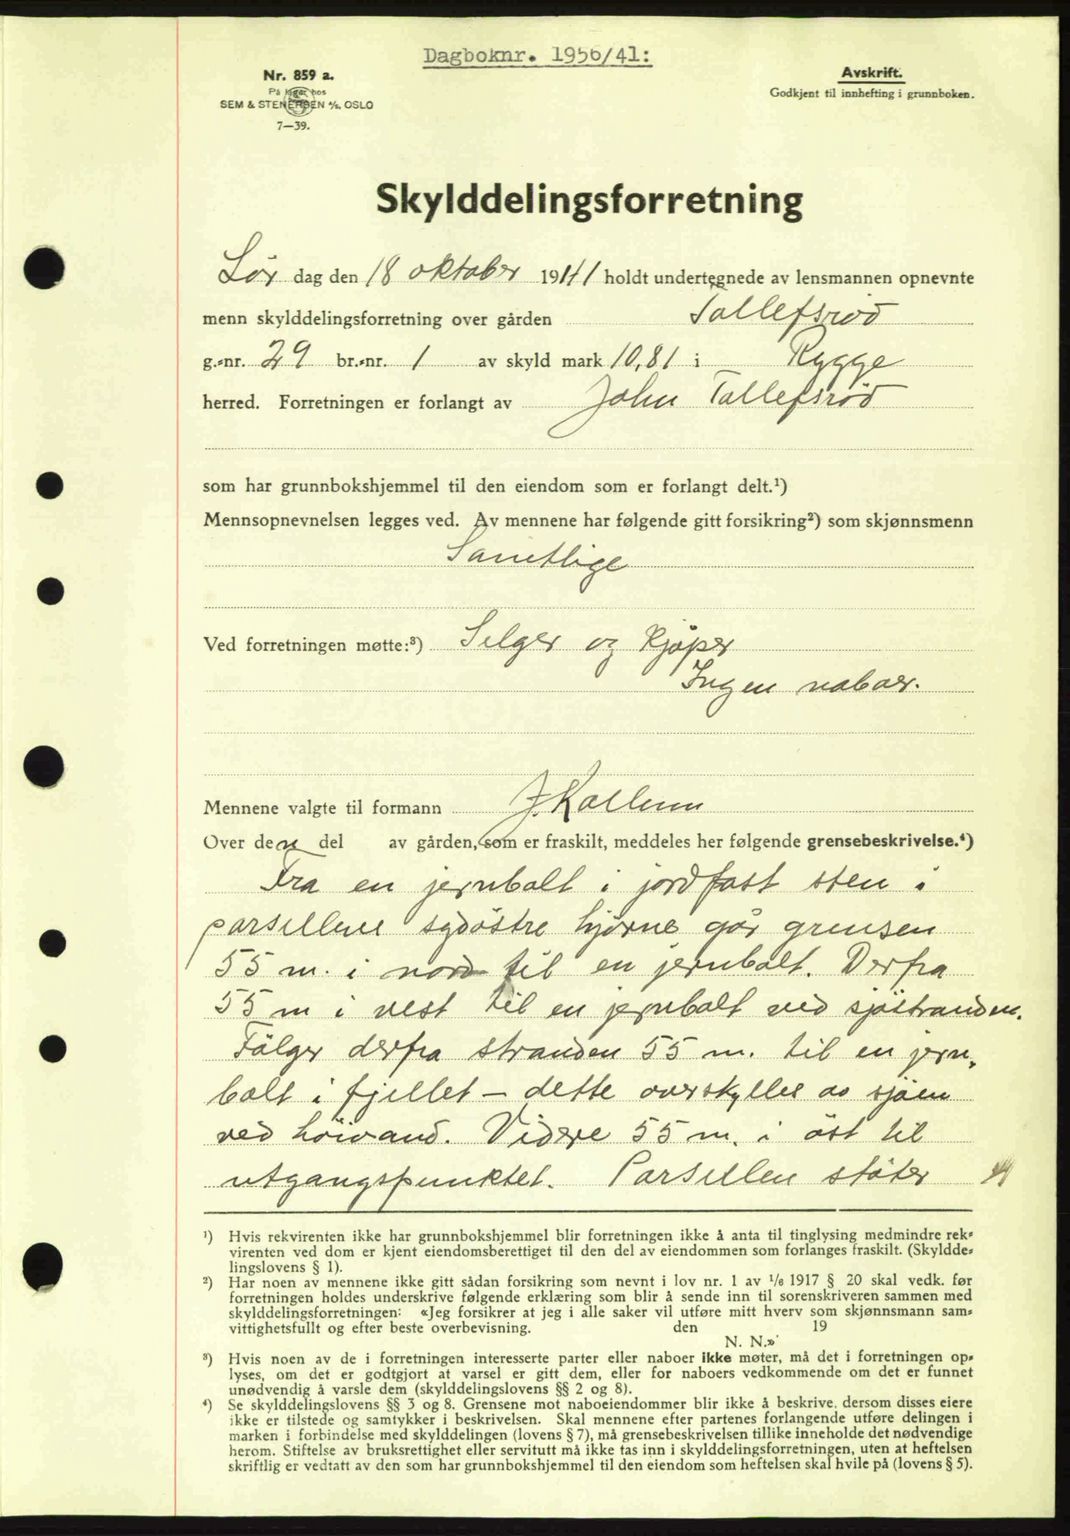 Dagboknr. 1956/41:
Nr. 859 a.
På lager hos
SEM & STENERSEN A/S, OSLO
7—39.
Avskrift.
Godkjent til innhefting i grunnboken.
Skylddelingsforretning
Lør dag den 18 oktober 1941 holdt undertegnede av lensmannen opnevnte
menn skylddelingsforretning over gården Tollefsrød
g.-nr. 29 br.-nr. 1 av skyld mark 10,81 i Rygge
herred. Forretningen er forlangt av John Tollefsrød
som har grunnbokshjemmel til den eiendom som er forlangt delt.¹)
Mennsopnevnelsen legges ved. Av mennene har følgende gitt forsikring²) som skjønnsmenn
Samtlige
Ved forretningen møtte:³) Selger og Kjøper
Ingen naboer.
Mennene valgte til formann
Over den del av gården, som er fraskilt, meddeles her følgende grensebeskrivelse.⁴)
Fra en jernbolt i jordfast sten i
parsellens sydøstre hjørne går grensen
55 m. i nord til en jernbolt. Derfra
55 m i vest til en jernbolt ved sjøstranden.
Følger derfra stranden 55 m. til en jern-
bolt i fjellet – dette overskylles av sjøen
ved høivand. Videre 55 m. i øst til
utgangspunktet. Parsellen støter
¹) Hvis rekvirenten ikke har grunnbokshjemmel blir forretningen ikke å anta til tinglysing medmindre rek-
virenten ved dom er kjent eiendomsberettiget til den del av eiendommen som forlanges fraskilt. (Skyldde-
lingslovens § 1).
²) Har noen av mennene ikke gitt sådan forsikring som nevnt i lov nr. 1 av 1/6 1917 § 20 skal vedk. før
forretningen holdes underskrive følgende erklæring som blir å sende inn til sorenskriveren sammen med
skylddelingsforretningen: «Jeg forsikrer at jeg i alle saker vil utføre mitt hverv som skjønnsmann sam-
vittighetsfullt og efter beste overbevisning. den 19
N. N.»
³) Hvis noen av de i forretningen interesserte parter eller naboer ikke møter, må det i forretningen op-
lyses, om det er godtgjort at varsel er gitt dem, eller for naboers vedkommende om det er funnet
unødvendig å varsle dem (skylddelingslovens §§ 2 og 8).
⁴) Se skylddelingslovens §§ 3 og 8. Grensene mot naboeiendommer blir ikke å beskrive, dersom disses eiere
ikke er tilstede og samtykker i beskrivelsen. Skal mennene efter partenes forlangende utføre delingen i
marken i forbindelse med skylddelingen (lovens § 7), må grensebeskrivelsen tillike inneholde det nødvendige
herom. Stiftelse av bruksrettighet eller servitutt må ikke tas inn i skylddelingsforretningen, uten at heftelsen
skriftlig er vedtatt av den som har grunnbokshjemmel til den eiendom som heftelsen skal hvile på (lovens § 5).